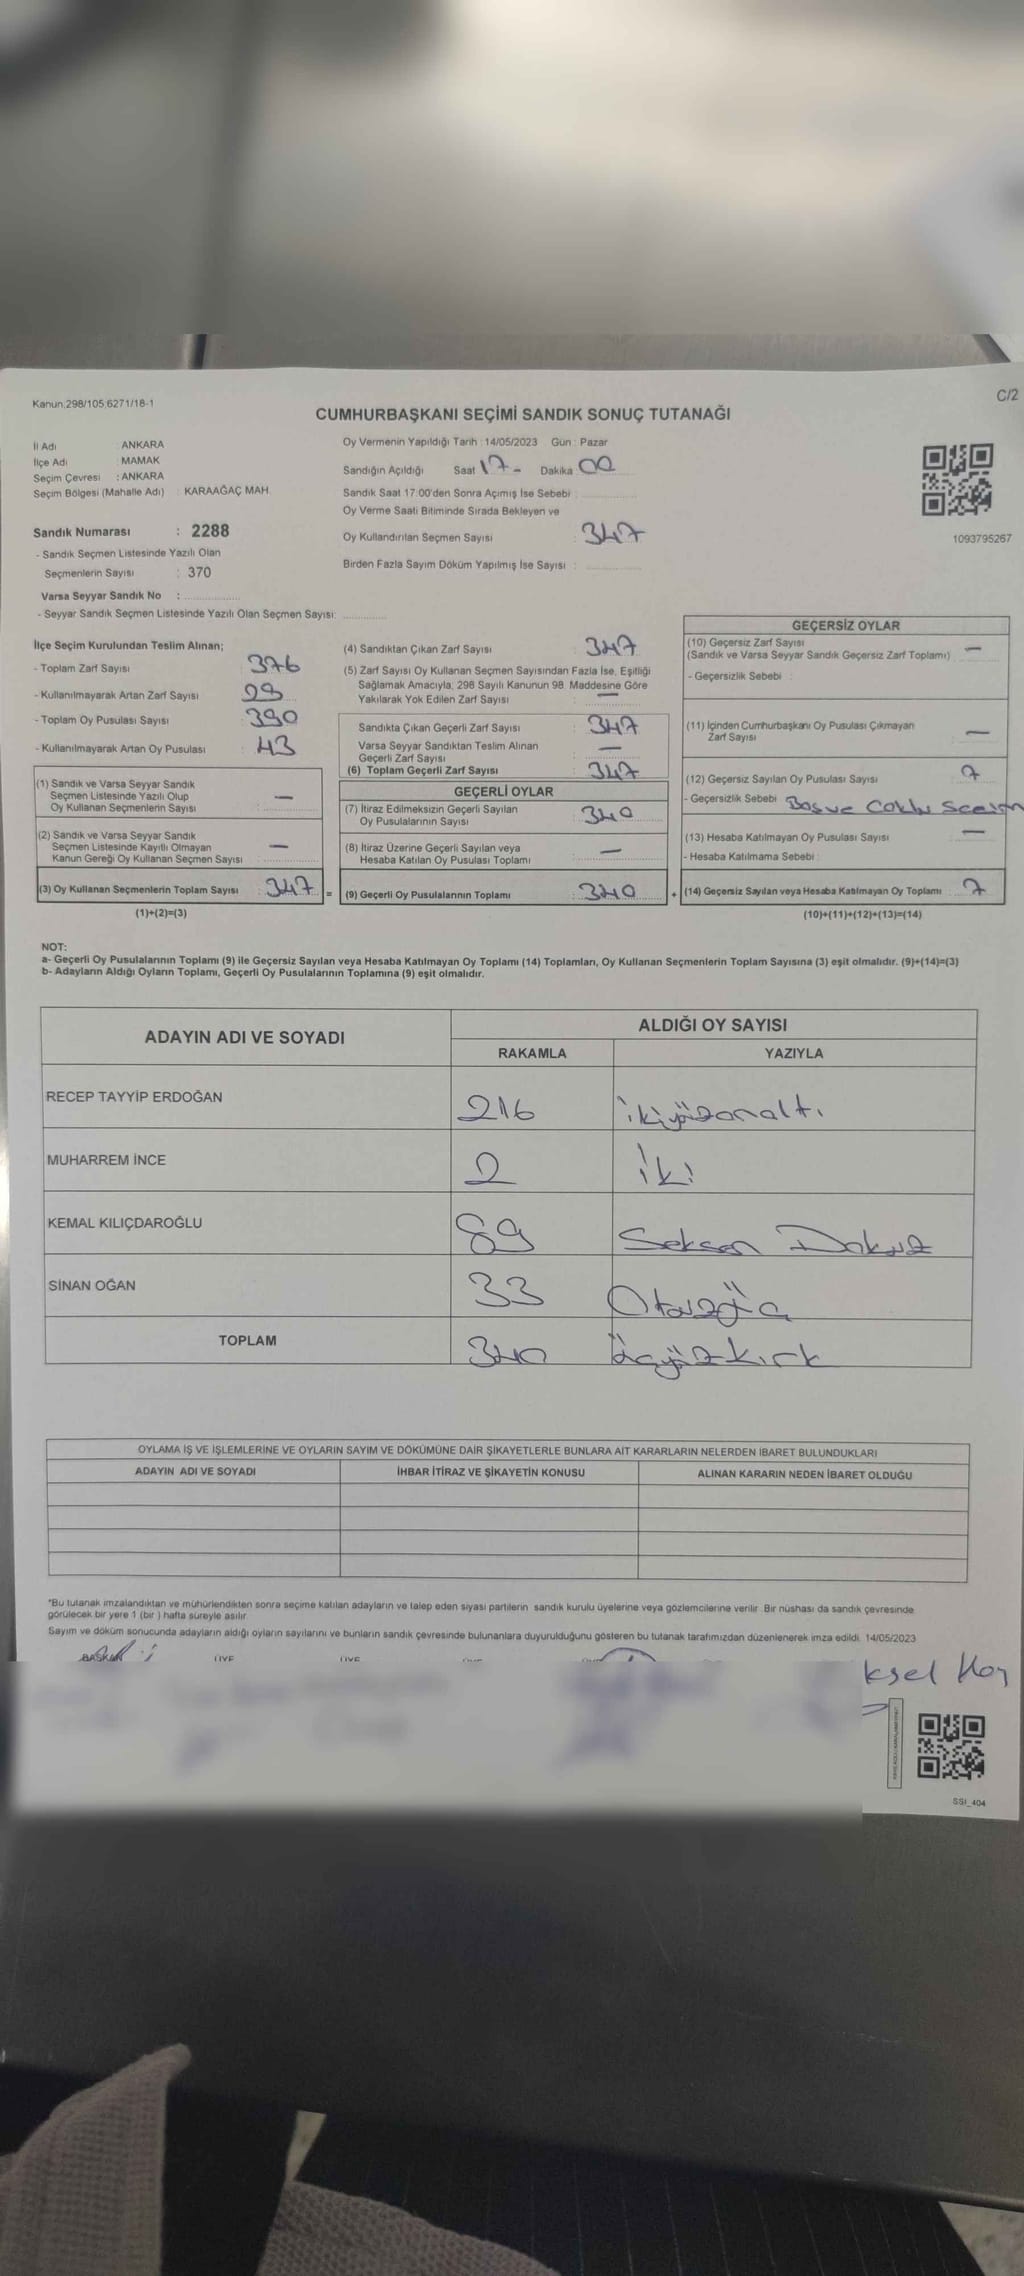 Kanun.298/105,6271/18-1
C/2
CUMHURBAŞKANI SEÇİMİ SANDIK SONUÇ TUTANAĞI
İl Adı : ANKARA
İlçe Adı : MAMAK
Seçim Çevresi : ANKARA
Seçim Bölgesi (Mahalle Adı) : KARAAĞAÇ MAH.
Sandık Numarası : 2288
- Sandık Seçmen Listesinde Yazılı Olan
Seçmenlerin Sayısı : 370
Varsa Seyyar Sandık No :
- Seyyar Sandık Seçmen Listesinde Yazılı Olan Seçmen Sayısı:
Oy Vermenin Yapıldığı Tarih : 14/05/2023 Gün : Pazar
Sandığın Açıldığı Saat 17 - Dakika 00
Sandık Saat 17:00'den Sonra Açımış İse Sebebi :
Oy Verme Saati Bitiminde Sırada Bekleyen ve
Oy Kullandırılan Seçmen Sayısı : 347
Birden Fazla Sayım Döküm Yapılmış İse Sayısı :
1093795267
İlçe Seçim Kurulundan Teslim Alınan;
- Toplam Zarf Sayısı : 376
- Kullanılmayarak Artan Zarf Sayısı : 29
- Toplam Oy Pusulası Sayısı : 390
- Kullanılmayarak Artan Oy Pusulası : 43
(1) Sandık ve Varsa Seyyar Sandık
Seçmen Listesinde Yazılı Olup
Oy Kullanan Seçmenlerin Sayısı : —
(2) Sandık ve Varsa Seyyar Sandık
Seçmen Listesinde Kayıtlı Olmayan
Kanun Gereği Oy Kullanan Seçmen Sayısı : —
(3) Oy Kullanan Seçmenlerin Toplam Sayısı : 347 =
(1)+(2)=(3)
(4) Sandıktan Çıkan Zarf Sayısı : 347
(5) Zarf Sayısı Oy Kullanan Seçmen Sayısından Fazla İse, Eşitliği
Sağlamak Amacıyla; 298 Sayılı Kanunun 98. Maddesine Göre
Yakılarak Yok Edilen Zarf Sayısı : —
Sandıkta Çıkan Geçerli Zarf Sayısı : 347
Varsa Seyyar Sandıktan Teslim Alınan
Geçerli Zarf Sayısı : —
(6) Toplam Geçerli Zarf Sayısı : 347
GEÇERLİ OYLAR
(7) İtiraz Edilmeksizin Geçerli Sayılan
Oy Pusulalarının Sayısı : 340
(8) İtiraz Üzerine Geçerli Sayılan veya
Hesaba Katılan Oy Pusulası Toplamı : —
(9) Geçerli Oy Pusulalarının Toplamı : 340 +
GEÇERSİZ OYLAR
(10) Geçersiz Zarf Sayısı
(Sandık ve Varsa Seyyar Sandık Geçersiz Zarf Toplamı) —
- Geçersizlik Sebebi :
(11) İçinden Cumhurbaşkanı Oy Pusulası Çıkmayan
Zarf Sayısı —
(12) Geçersiz Sayılan Oy Pusulası Sayısı 7
- Geçersizlik Sebebi : Boş ve Çoklu Seçim
(13) Hesaba Katılmayan Oy Pusulası Sayısı —
- Hesaba Katılmama Sebebi :
(14) Geçersiz Sayılan veya Hesaba Katılmayan Oy Toplamı 7
(10)+(11)+(12)+(13)=(14)
NOT:
a- Geçerli Oy Pusulalarının Toplamı (9) ile Geçersiz Sayılan veya Hesaba Katılmayan Oy Toplamı (14) Toplamları, Oy Kullanan Seçmenlerin Toplam Sayısına (3) eşit olmalıdır. (9)+(14)=(3)
b- Adayların Aldığı Oyların Toplamı, Geçerli Oy Pusulalarının Toplamına (9) eşit olmalıdır.
ADAYIN ADI VE SOYADI
ALDIĞI OY SAYISI
RAKAMLA YAZIYLA
RECEP TAYYİP ERDOĞAN 216 ikiyüzonaltı
MUHARREM İNCE 2 iki
KEMAL KILIÇDAROĞLU 89 Seksen Dokuz
SİNAN OĞAN 33 Otuzüç
TOPLAM 340 üçyüzkırk
OYLAMA İŞ VE İŞLEMLERİNE VE OYLARIN SAYIM VE DÖKÜMÜNE DAİR ŞİKAYETLERLE BUNLARA AİT KARARLARIN NELERDEN İBARET BULUNDUKLARI
ADAYIN ADI VE SOYADI İHBAR İTİRAZ VE ŞİKAYETİN KONUSU ALINAN KARARIN NEDEN İBARET OLDUĞU
*Bu tutanak imzalandıktan ve mühürlendikten sonra seçime katılan adayların ve talep eden siyasi partilerin sandık kurulu üyelerine veya gözlemcilerine verilir. Bir nüshası da sandık çevresinde
görülecek bir yere 1 (bir ) hafta süreyle asılır.
Sayım ve döküm sonucunda adayların aldığı oyların sayılarını ve bunların sandık çevresinde bulunanlara duyurulduğunu gösteren bu tutanak tarafımızdan düzenlenerek imza edildi. 14/05/2023
BAŞKAN ÜYE ÜYE
ksel
SSI_404